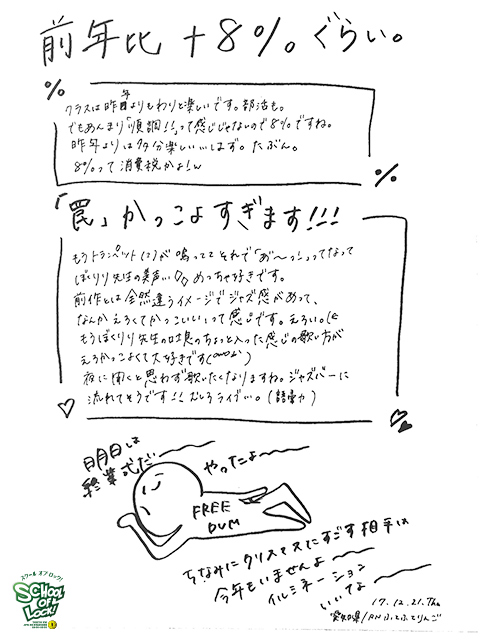 前年比 +8%。ぐらい。
%
クラスは昨年よりもわりと楽しいです。部活も。
でもあんまり「順調!!」って感じじゃないので8%ですね。
昨年よりは多分楽しいいします。たぶん。
8%って消費税かよ!w
%
「罠」かっこよすぎます!!!
もうトランペット(?)が鳴っててそれで「あ゛〜っ」ってなって
ぼくりり先生の美声い◇◇めっちゃ好きです。
前作とは全然違うイメージでジャズ感があって、
なんかえろくてかっこいいって感じです。えろい。
もうぼくりり先生の吐息のちょっと入った感じの歌い方が
えろかっこよくて大好きです
夜に聞くと思わず歌いたくなりますね。ジャズバーに
流れてそうです!!むしろライブい。(語彙力)
明日は
終業式だ〜
やったよ〜
FREE
DUM
ちなみにクリスマスにすごす相手は
今年もいませんよ
イルミネーション
いいな
17.12.21.Thu
愛知県/RN ふてふてりんご
スクール オブ ロック!
SCHOOL
OF
LOCK!